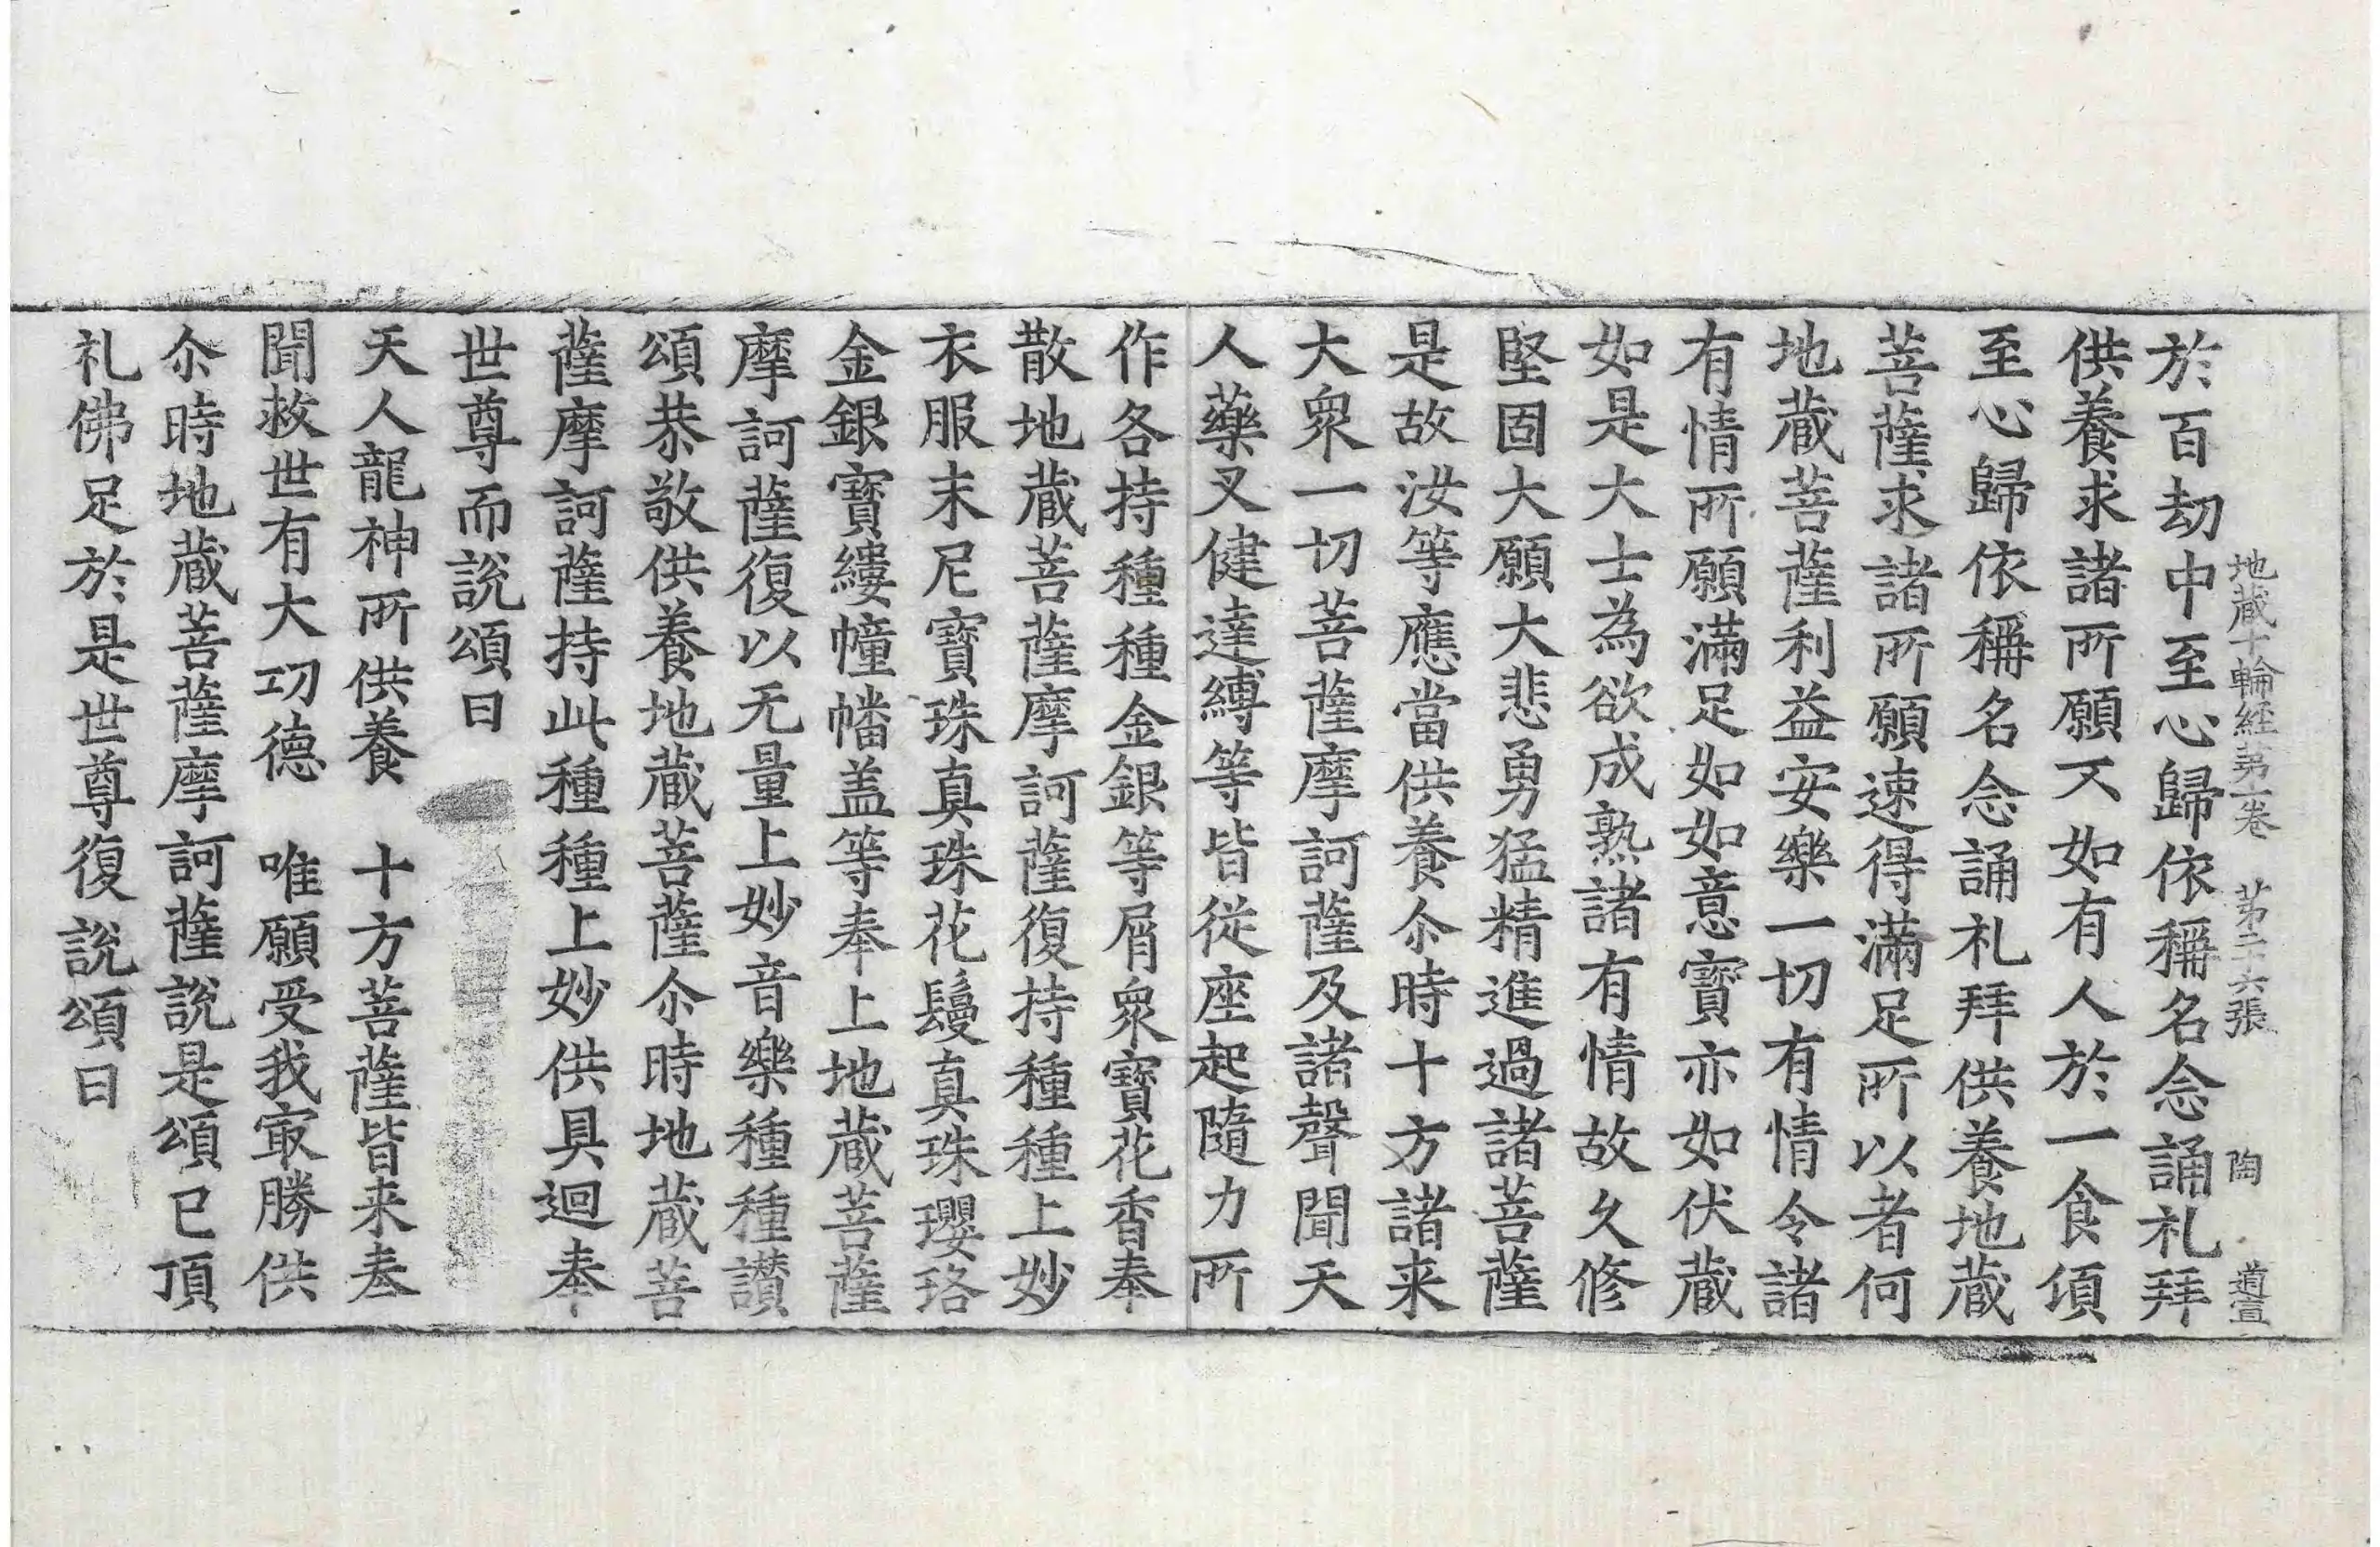 地蔵十輪経苐一卷　苐二十六張　陶　道宣
於百劫中至心歸依稱名念誦礼拜
供養求諸所願不如有人於一食頃
至心歸依稱名念誦礼拜供養地蔵
菩薩求諸所願速得滿足所以者何
地蔵菩薩利益安樂一切有情令諸
有情所願滿足如如意寳亦如伏蔵
如是大士為欲成熟諸有情故久修
堅固大願大悲勇猛精進過諸菩薩
是故汝等應當供養尒時十方諸来
大衆一切菩薩摩訶薩及諸聲聞天
人藥叉健達縛等皆従座起隨力所
作各持種種金銀等屑衆寳花香奉
散地蔵菩薩摩訶薩復持種種上妙
衣服末尼寳珠真珠花鬘真珠瓔珞
金銀寳縷幢幡盖等奉上地蔵菩薩
摩訶薩復以无量上妙音樂種種讃
頌恭敬供養地蔵菩薩尒時地蔵菩
薩摩訶薩持此種種上妙供具迴奉
世尊而説頌曰
天人龍神所供養　十方菩薩皆来奉
聞救世有大功德　唯願受我㝡勝供
尒時地蔵菩薩摩訶薩説是頌已頂
礼佛足於是世尊復説頌曰